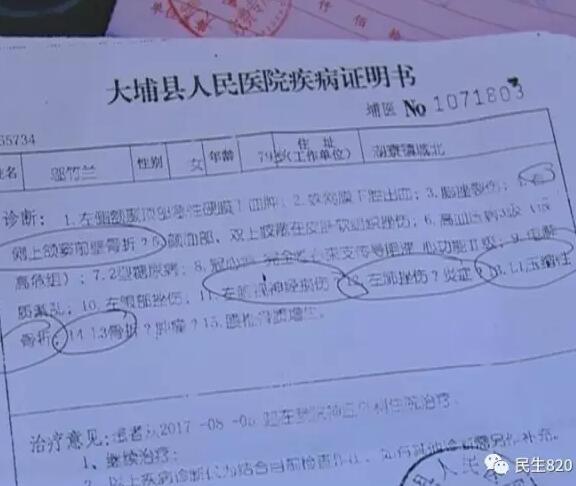 大埔县人民医院疾病证明书
埔医 No 1071803
65734
姓名 邬竹兰 性别 女 年龄 79岁 住址(工作单位) 湖寮镇城北
诊断: 1.左侧额颞顶部急性硬膜下血肿; 2.蛛网膜下腔出血; 3.脑挫裂伤;
侧上颌窦前壁骨折? 颜面部、双上肢散在皮肤软组织挫伤; 6.高血压病3级
高危组); 7.2型糖尿病; 8.冠心病 完全性 束支传导阻滞 心功能 级; 9.电解
质紊乱; 10.左眼部挫伤; 11.左 神经损伤? 12.左肺挫伤? 炎症? 13.L1压缩性
骨折; 14.L3骨折? 肿瘤? 15.腰椎骨质增生。
治疗意见: 患者从2017-08-0 起在我院神经外科住院治疗。
1、继续治疗;
2、以上疾病诊断 为结合目前检查作出, 如有其他诊断需另作补充。
人民医
民生820